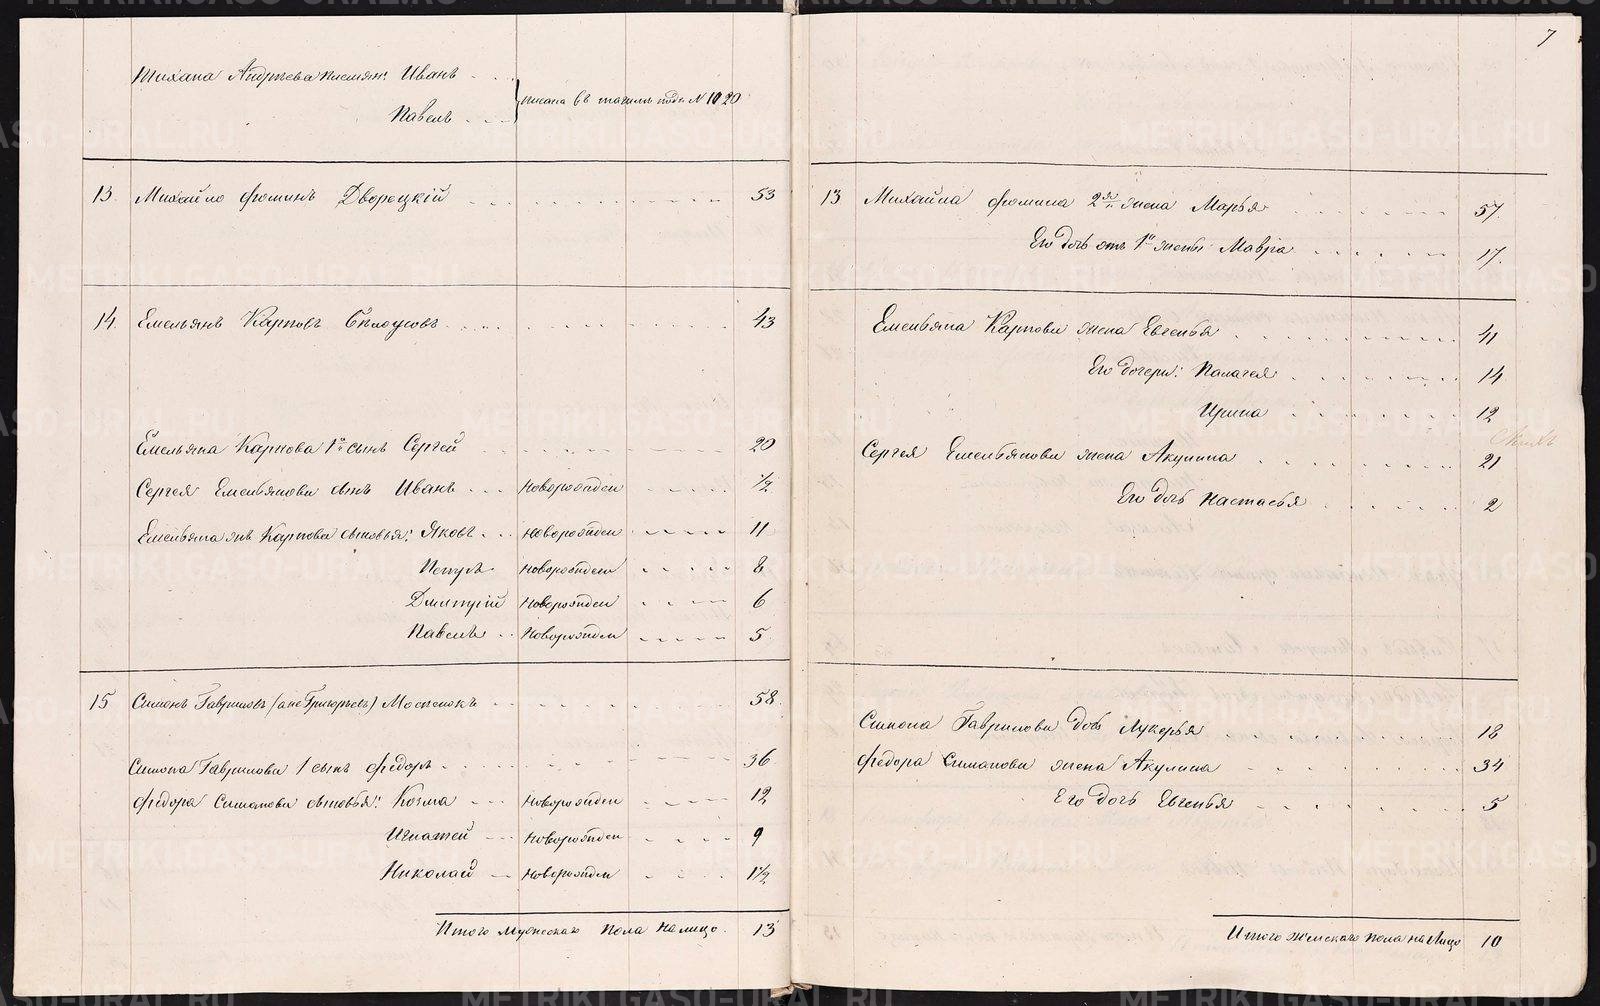 7
Тихана Андреева племян: Иванъ
Павелъ
писана въ тагилъ подъ N 1020
13. Михайло Фоминъ Дворецкій 53
14. Емельянъ Карповъ Бѣлоусовъ 43
Емельяна Карпова 1й сынъ Сергей 20
Сергея Емельянова сынъ Иванъ новорожден ½
Емельяна жъ Карпова сыновья: Яковъ новорожден 11
Петръ новорожден 8
Дмитрій новорожден 6
Павелъ новорожден 5
15 Симонъ Гавриловъ (а не Григорьевъ) 58
Симона Гаврилова 1 сынъ Федоръ 36
Федора Симанова сыновья: Козма новорожден 12
Игнатей новорожден 9
Николай новорожден 1½
Итого мужескаго пола на лицо 13
13 Михайла Фомина 2я жена Марья 57.
Его дочь отъ 1й жены Мавра 17.
Емельяна Карпова жена Евгенья 41
Его дочери: Палагея 14
Ирина 12
Сергея Емельянова жена Акулина 21
Его дочь Настасья 2
Симона Гаврилова дочь Лукерья 18
Федора Симанова жена Акулина 34
Его дочь Евгенья 5
Итого женскаго пола на лицо 10
METRIKI.GASO-URAL.RU